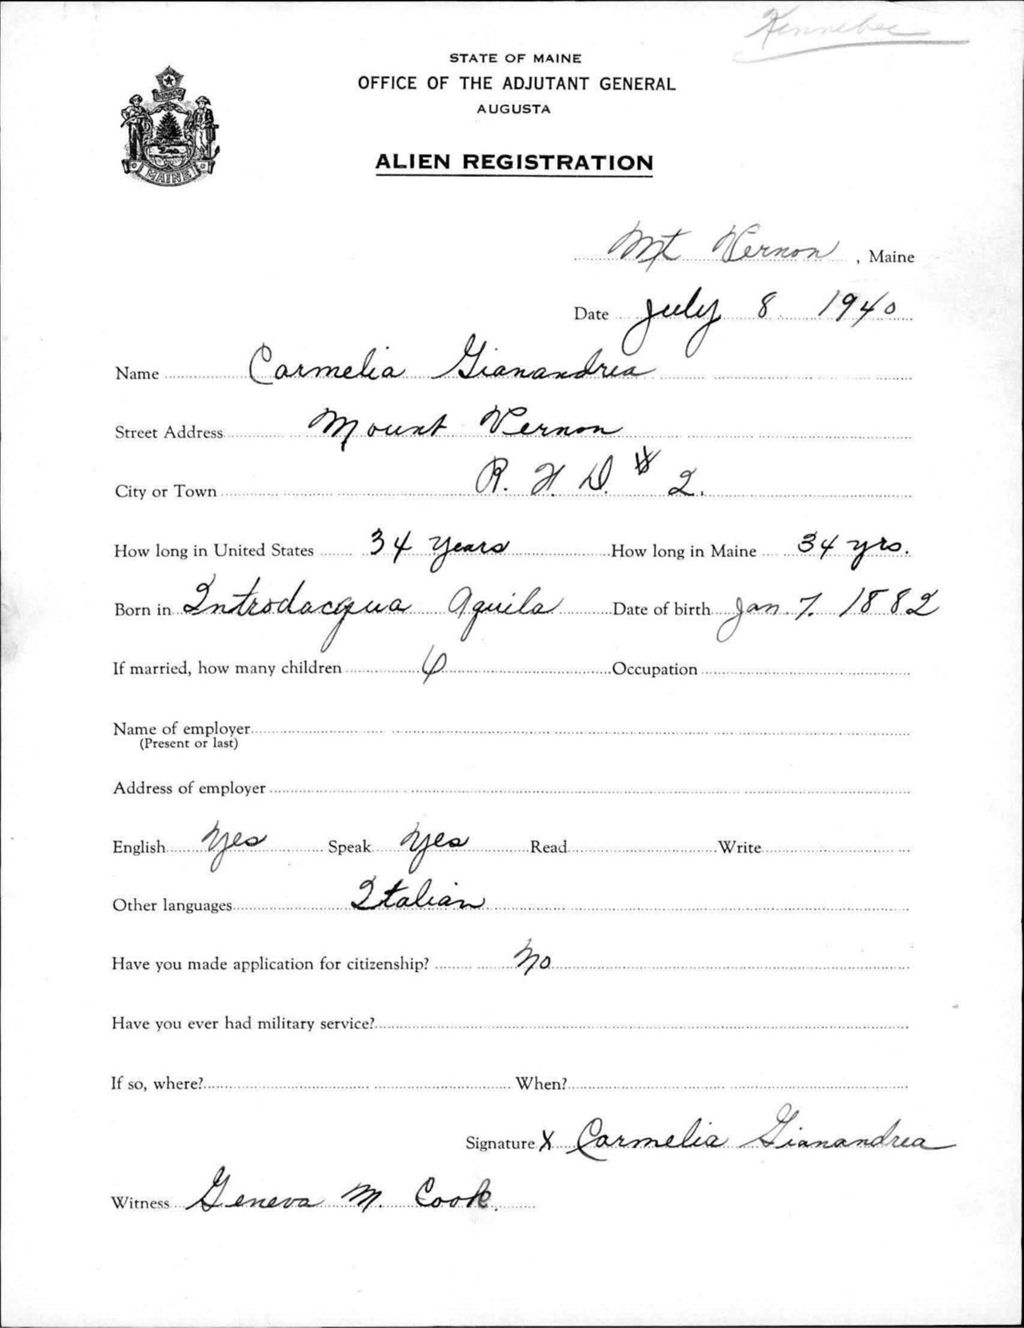 Kennebec
STATE OF MAINE
OFFICE OF THE ADJUTANT GENERAL
AUGUSTA
MAINE
ALIEN REGISTRATION
Mt Vernon, Maine
Date July 8 1940
Name Carmelia Gianandrea
Street Address Mount Vernon
City or Town R. F. D. # 2.
How long in United States 34 years How long in Maine 34 yrs.
Born in Introdacqua Aquila Date of birth Jan. 7. 1882
If married, how many children 6 Occupation
Name of employer
(Present or last)
Address of employer
English Yes Speak Yes Read Write
Other languages Italian
Have you made application for citizenship? No
Have you ever had military service?
If so, where? When?
Signature X Carmelia Gianandrea
Witness Geneva M. Cook.